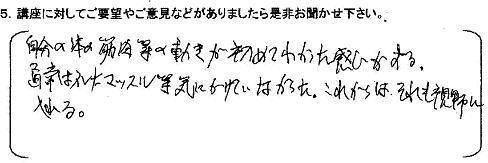 5. 講座に対してご要望やご意見などがありましたら是非お聞かせ下さい。
自分の体の筋肉等の動きが初めてわかった感じがする。
通常はインナマッスル等気にかけていなかった。これからはそれも視野に
入れる。